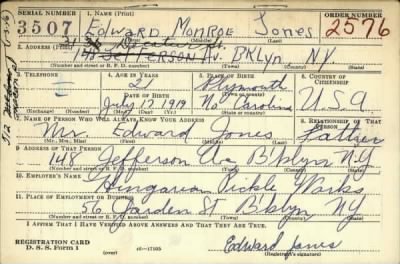 SERIAL NUMBER 1. NAME (Print) ORDER NUMBER
3507 Edward Monroe Jones 2576
(First) (Middle) (Last)
2. ADDRESS (Print)
148 Jefferson Av. Bklyn N.Y.
(Number and street or R. F. D. number) (Town) (County) (State)
3. TELEPHONE 4. AGE IN YEARS 5. PLACE OF BIRTH 6. COUNTRY OF CITIZENSHIP
21 Plymouth
DATE OF BIRTH (Town or county)
July 12 1919 No Carolina U.S.A
(Exchange) (Number) (Mo.) (Day) (Yr.) (State or country)
7. NAME OF PERSON WHO WILL ALWAYS KNOW YOUR ADDRESS 8. RELATIONSHIP OF THAT PERSON
Mr. Edward Jones Father
(Mr., Mrs., Miss) (First) (Middle) (Last)
9. ADDRESS OF THAT PERSON
148 Jefferson Ave B'klyn N.Y
(Number and street or R. F. D. number) (Town) (County) (State)
10. EMPLOYER'S NAME
Hungarian Pickle Works
11. PLACE OF EMPLOYMENT OR BUSINESS
56 Garden St B'klyn NY
(Number and street or R. F. D. number) (Town) (County) (State)
I AFFIRM THAT I HAVE VERIFIED ABOVE ANSWERS AND THAT THEY ARE TRUE.
REGISTRATION CARD
D. S. S. Form 1 (over) 16—17105 Edward Jones
(Registrant's signature)